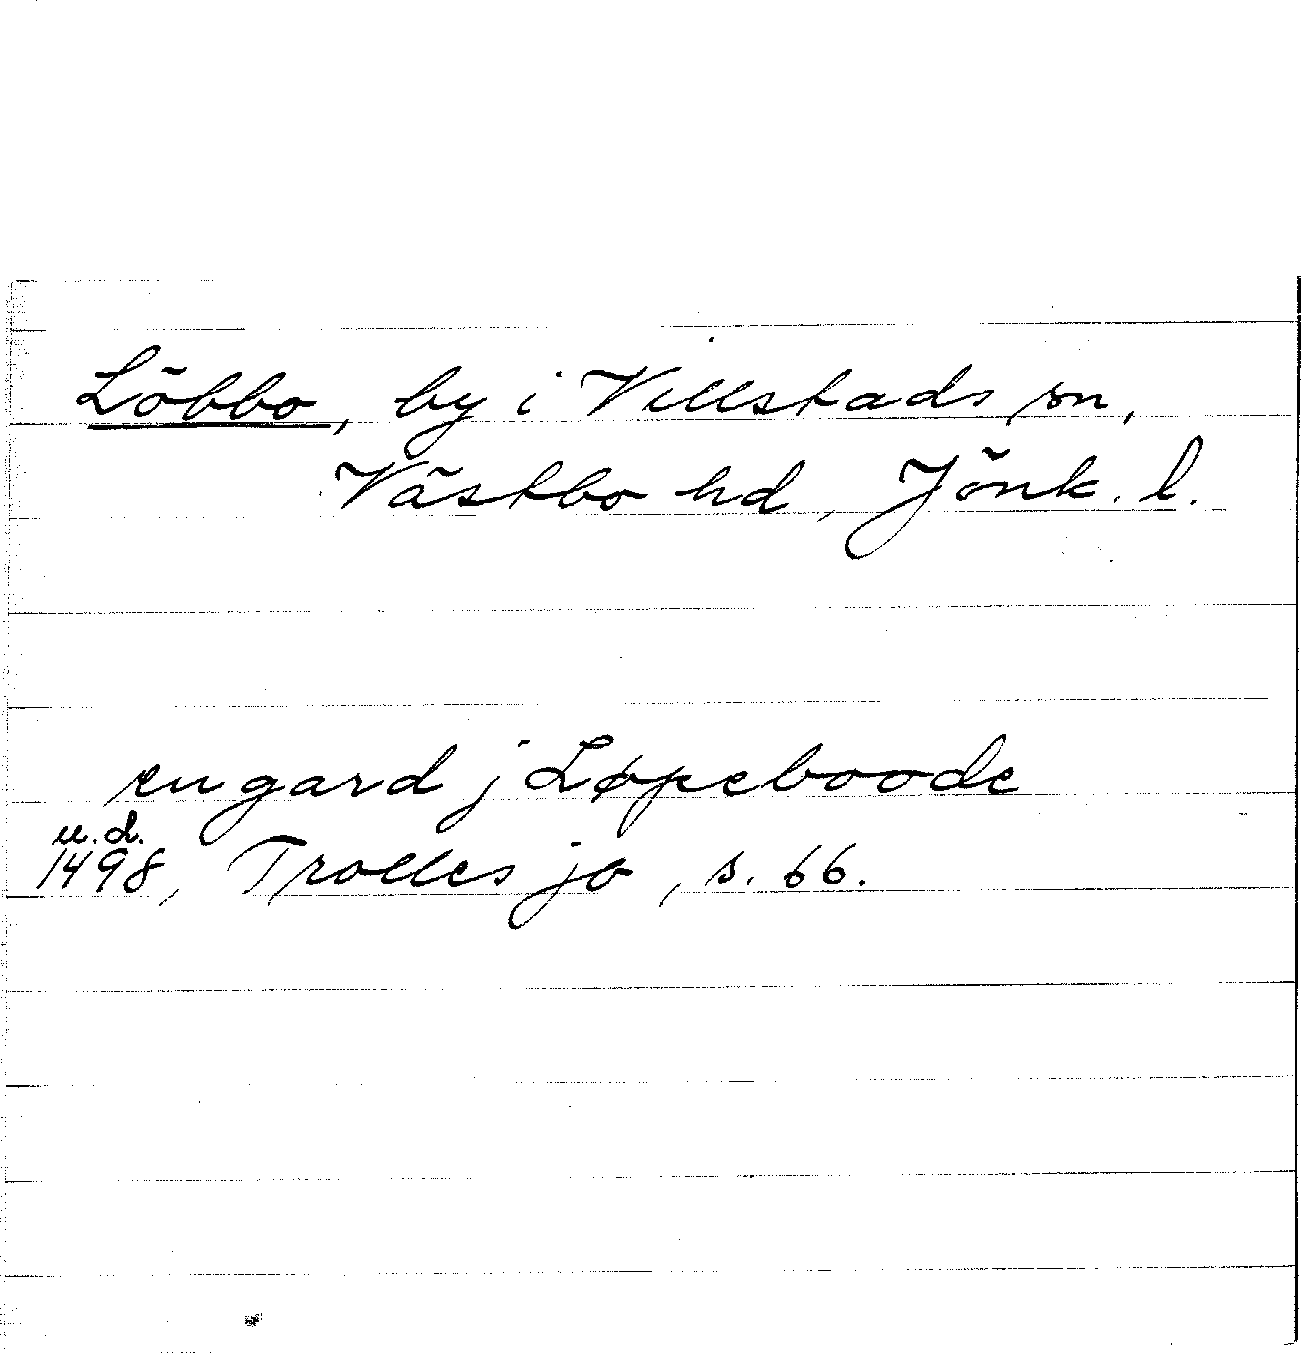 Löbbo, by i Villstads sn,
Västbo hd, Jönk. l.
en gard j Løpeboode
u.d.
1498, Trolles jb, s. 66.